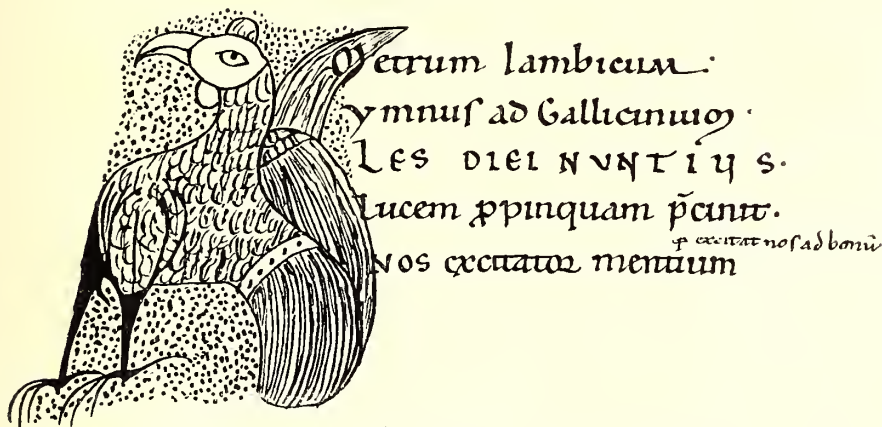 Metrum Iambicum.
Ymnus ad Gallicinium.
LES DIEI NVNTIUS.
Lucem ꝓpinquam p̄cinit.
excitat nos ad bonū
Nos excitator mentium